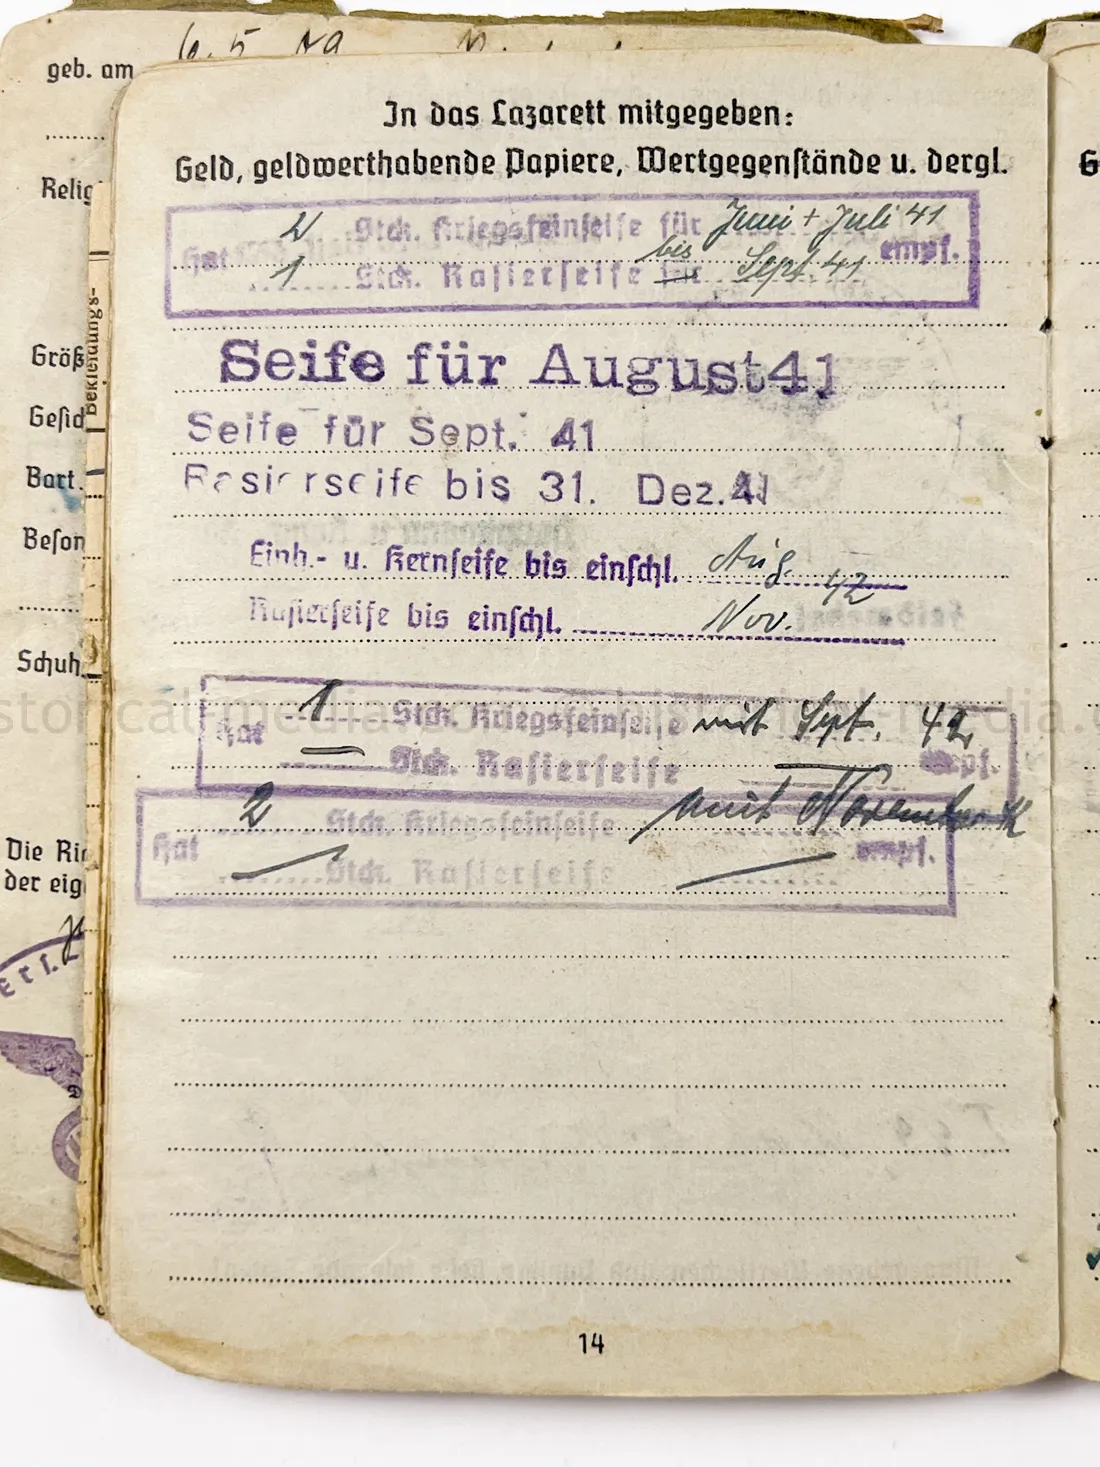 geb. am 6. 5
Relig
Größ
Bekleidungs-
Gesich
Bart.
Beson
Schuh
Die Ri
der eig
In das Lazarett mitgegeben:
Geld, geldwerthabende Papiere, Wertgegenstände u. dergl.
2 Stck. Kriegsfeinseife für Juni + Juli 41
Hat empf.
1 Stck. Rasierseife für bis Sept. 41
Seife für August 41
Seife für Sept. 41
Rasierseife bis 31. Dez. 41
Einh.- u. Kernseife bis einschl. Aug. 42
Rasierseife bis einschl. Nov.
1 Stck. Kriegsfeinseife mit Sept. 42
Hat empf.
— Stck. Rasierseife —
2 Stck. Kriegsfeinseife mit November 42
Hat empf.
— Stck. Rasierseife —
14
G
historical-media.